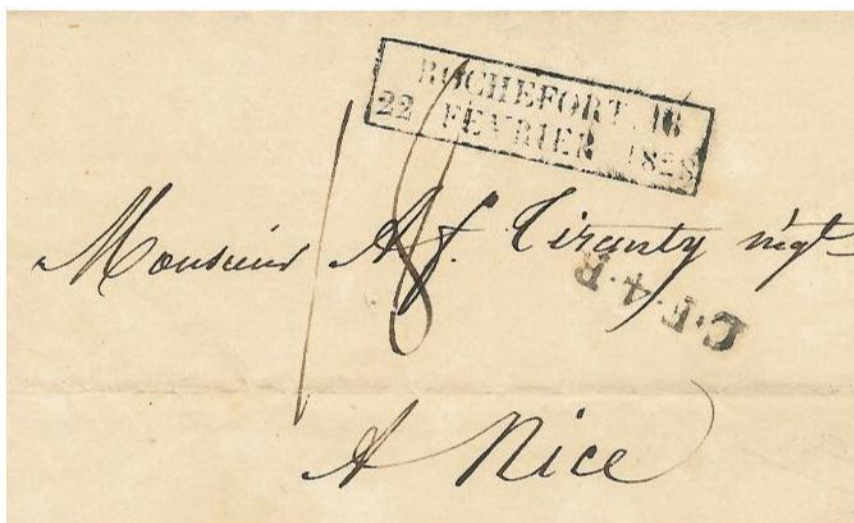 ROCHEFORT. 16
22 FEVRIER 1829
18
Monsieur A f. Tiranty négt
C.F.4.R
A Nice